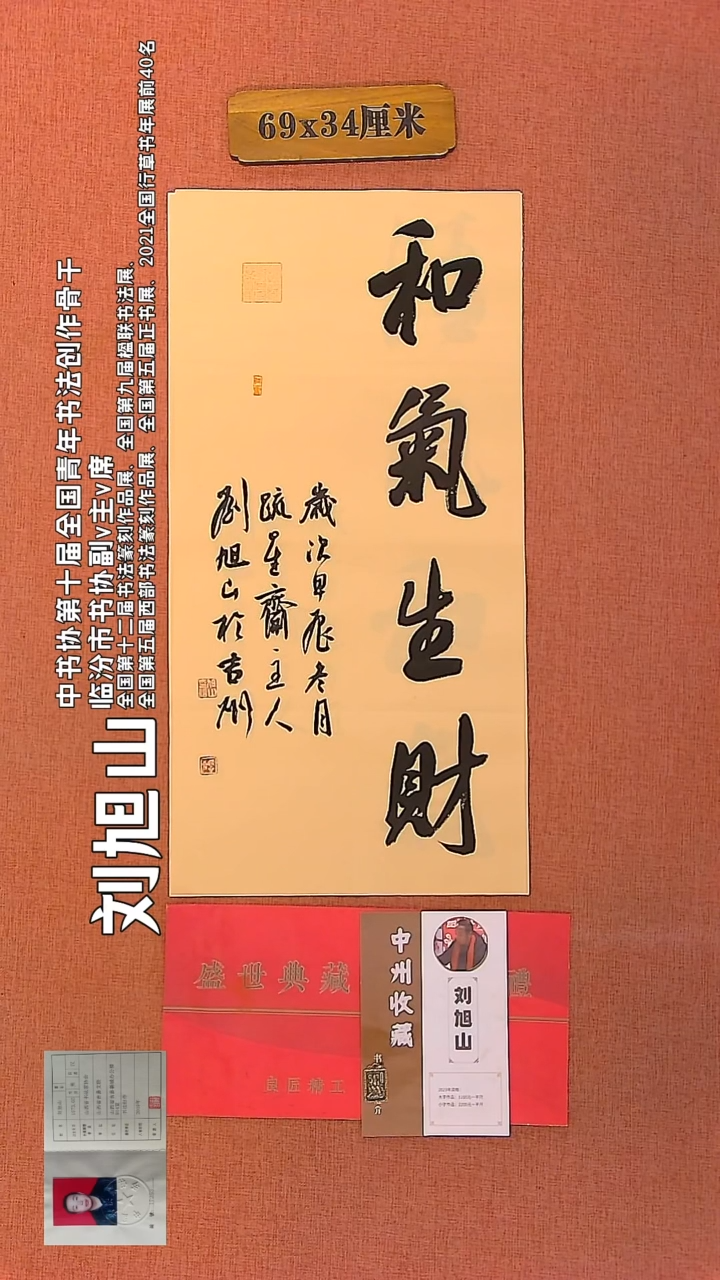 69x34厘米
和氣生財
歲次甲辰冬月
疏星齋主人
劉旭山於吉州
中书协第十届全国青年书法创作骨干
临汾市书协副v主v席
全国第十二届书法篆刻作品展、全国第九届楹联书法展、
全国第五届西部书法篆刻作品展、全国第五届正书展、2021全国行草书年展前40名
刘旭山
盛世典藏
良匠精工
中州收藏
刘旭山